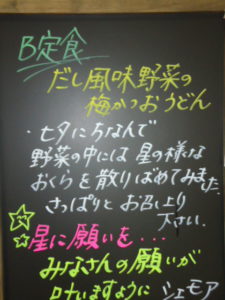 B定食
だし風味野菜の
梅かつおうどん
・七夕にちなんで
野菜の中には星の様な
おくらを散りばめてみました
さっぱりとお召し上り
下さい.
星に願いを...
みなさんの願いが
叶いますように シェモア